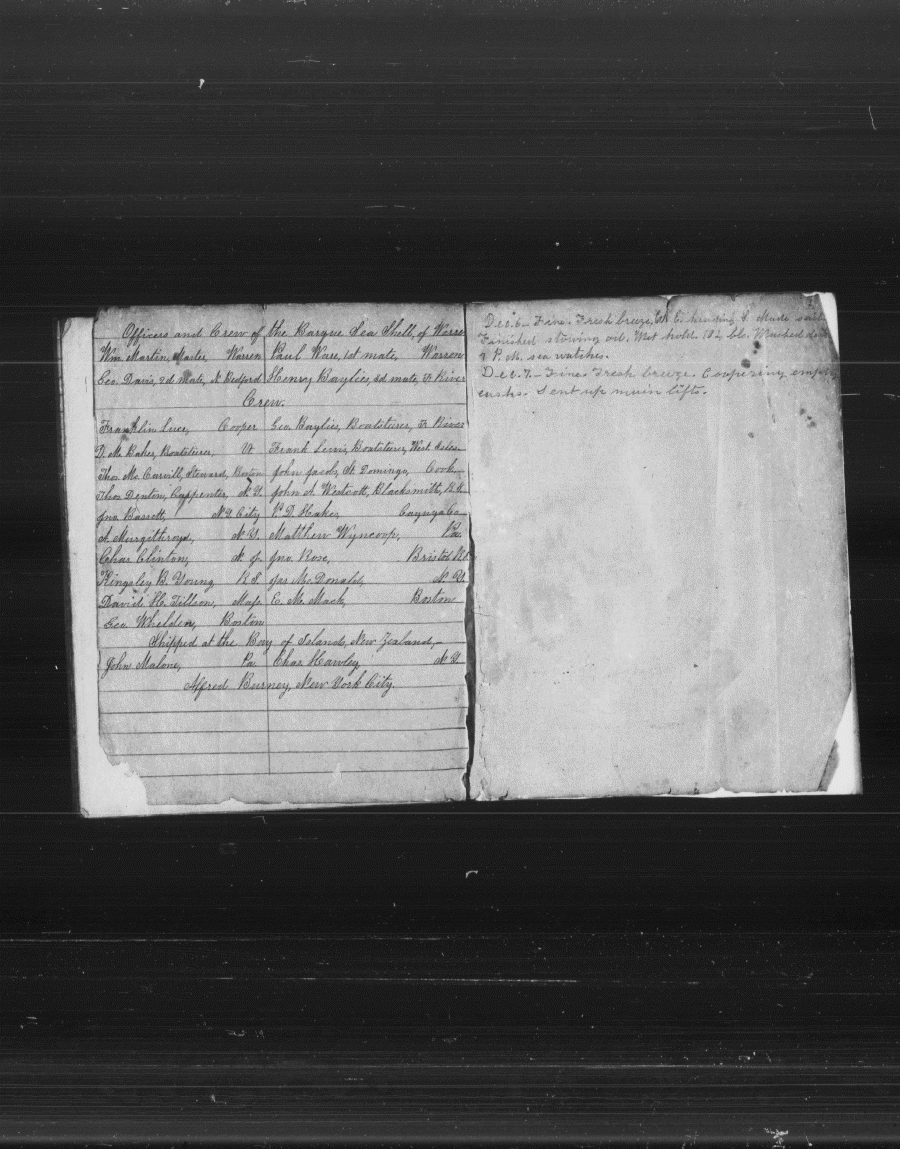 Officers and Crew of the Barque Sea Shell, of Warre
Wm. Martin, Master, Warren Paul Ware, 1st mate, Warren
Geo. Davis, 2d mate, N. Bedford Henry Baylies, 3d mate, F. River
Crew.
Franklin Luce, Cooper Geo. Baylies, Boatsteerer, F. River
D. M. Baker, Boatsteerer, Vt Frank Lewis, Boatsteerer, West. Isles
Thos. Mc. Carvill, Steward, Boston John Jacob, St. Domingo, Cook
Thos Denton, Carpenter, N.Y. John A. Westcott, Blacksmith, R.I.
Jno. Bassett, N.Y. City P. D. Haker, Cayuga Co
A. Murgittroyd, N.Y. Matthew Wyncoop, Pa.
Chas Clinton, N. J. Jno. Rose, Bristol R.I.
Kingsley B. Young R.I. Jas Mc. Donald, N.Y.
David H. Tillson, Mass E. M. Mack, Boston
Geo Whelden, Boston
Shipped at the Bay of Islands, New Zealand,
John Malone, Pa Chas Hawley, N.Y.
Alfred Burney, New York City.
Dec. 6 – Fine. Fresh breeze, at heading S. Made sail
Finished stowing oil. Met hold. 182 bbl. Washed
P.M. sea watches.
Dec. 7. – Fine. Fresh breeze. Coopering empty
casks. Sent up main lifts.